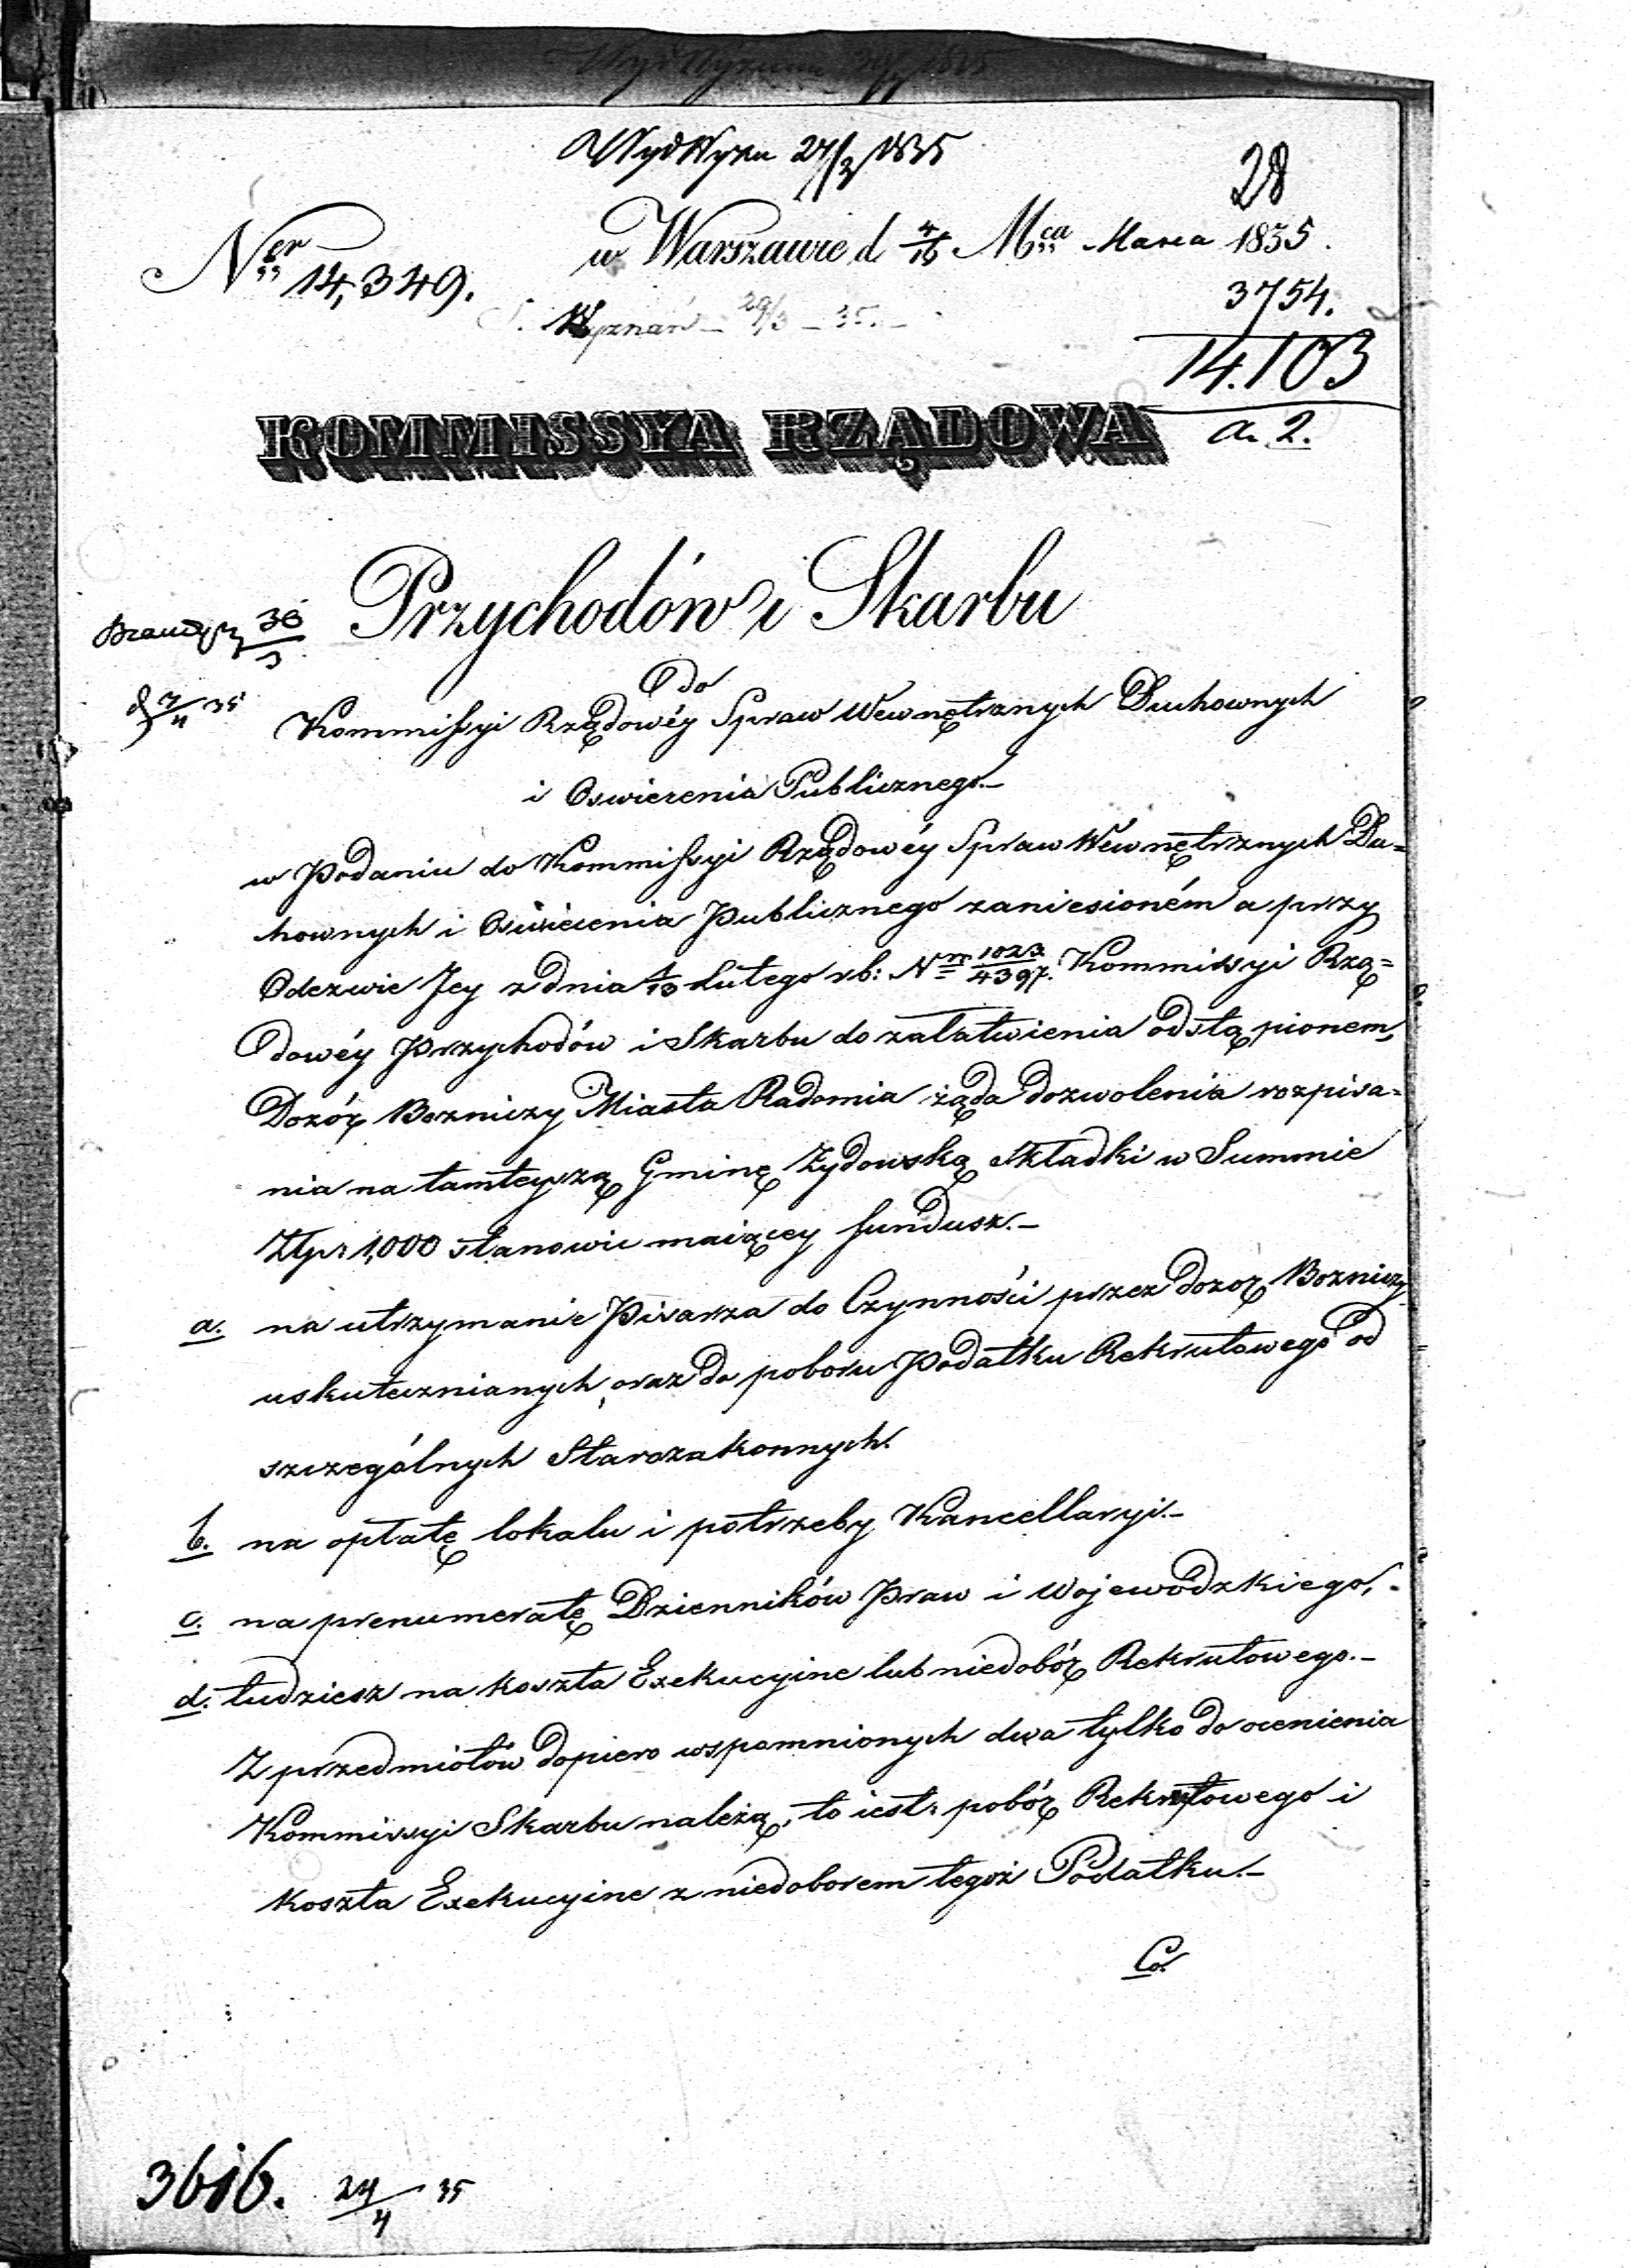 Wyd Wyzn 24/3 1835
28
Ner 14,349.
w Warszawie d 4/16 Mca Marca 1835.
Wyznań 29/3 - 35.
3754.
14.103
a. 2.
KOMMISSYA RZĄDOWA
Przychodów i Skarbu
30/3
7/4 35
do
Kommissyi Rządowéy Spraw Wewnętrznych Duchownych
i Oswiecenia Publicznego.-
w Podaniu do Kommissyi Rządowéy Spraw Wewnętrznych Du=
hownych i Oswiecenia Publicznego zaniesioném a przy
Odezwie Jey z dnia Lutego rb: Nr 1023/4397. Kommissyi Rzą=
dowéy Przychodów i Skarbu do załatwienia odstąpionem,
Dozór Bozniczy Miasta Radomia żąda dozwolenia rozpisa=
nia na tamteyszą Gminę Żydowską Składki w Summie
Złp: 1,000 stanowic maiącey fundusz.-
a. na utrzymanie Pisarza do Czynności przez dozor Bozniczy
uskutecznianych, oraz do poboru Podatku Rekrutowego od
szczególnych Starozakonnych.
b. na opłatę lokalu i potrzeby Kancellaryi.-
c. na prenumeratę Dzienników Praw i Wojewódzkiego,-
d. tudziesz na koszta Exekucyine lub niedobór Rekrutowego.-
Z przedmiotów dopiero wspomnionych dwa tylko do ocenienia
Kommissyi Skarbu należą, to iest: pobór Rekrutowego i
koszta Exekucyine z niedoborem tegoż Podatku.-
Co
3616. 24/4 35